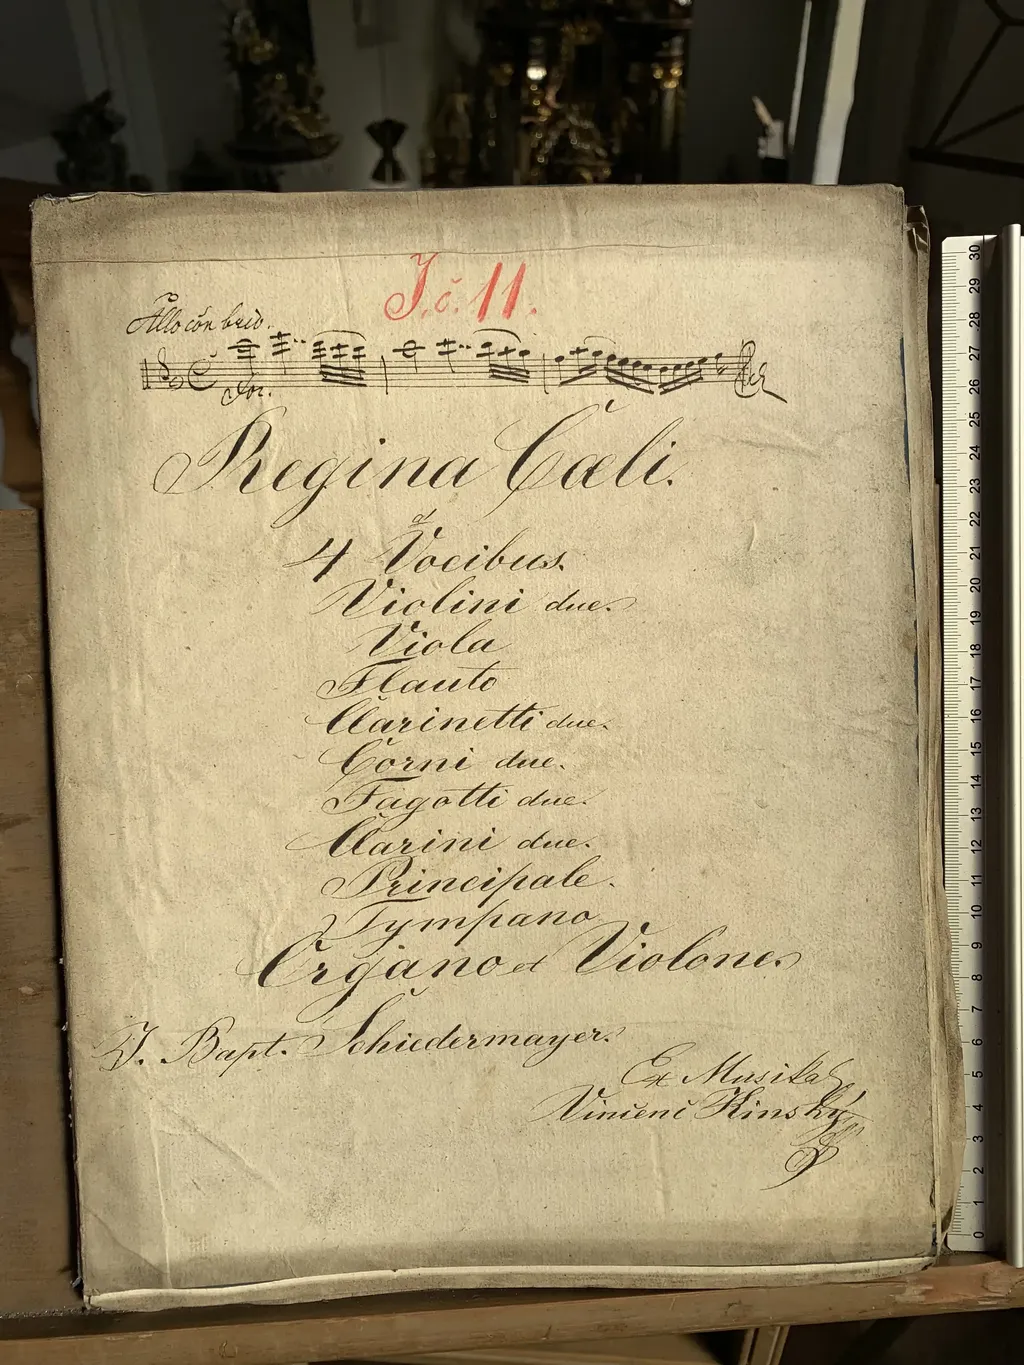 J. č. 11.
Allo con brio.
For.
Regina Cœli.
a
4 Vocibus.
Violini due.
Viola
Flauto
Clarinetti due.
Corni due.
Fagotti due.
Clarini due.
Principale.
Tympano
Organo et Violone.
J. Bapt. Schiedermayer.
Ex Musikal
Vincenc Kinský
30
29
28
27
26
25
24
23
22
21
20
19
18
17
16
15
14
13
12
11
10
9
8
7
6
5
4
3
2
1
0